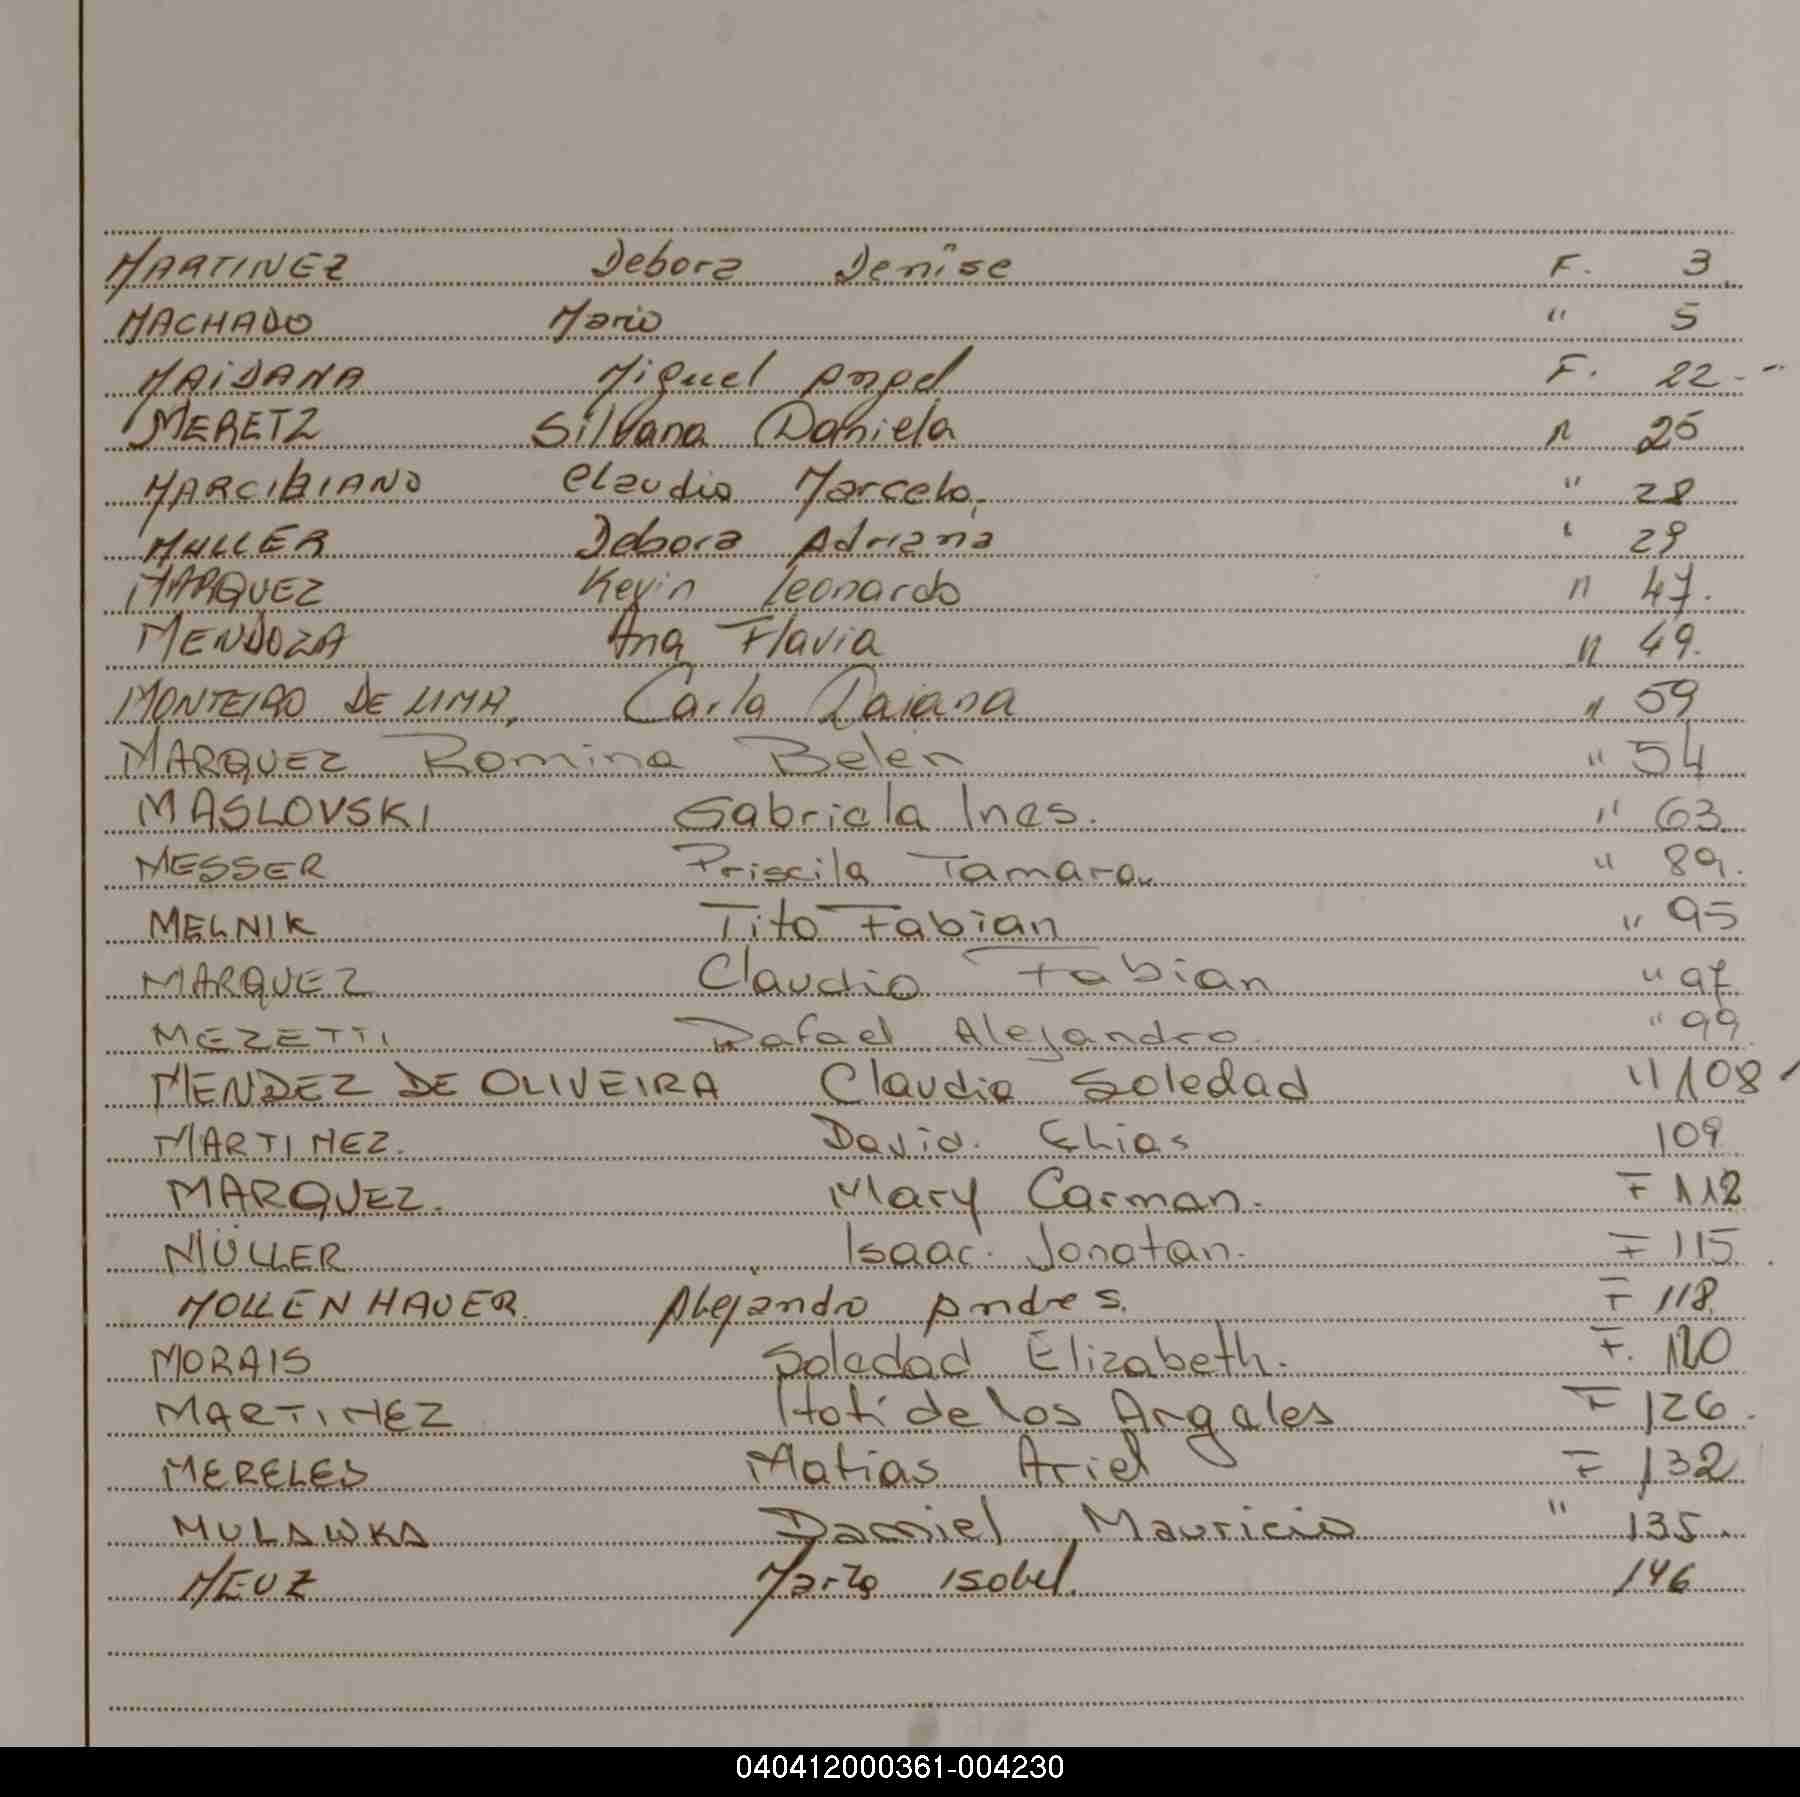 MARTINEZ Debora Denise F. 3
MACHADO Mario " 5
MAIDANA Miguel Angel F. 22
MERETZ Silvana Daniela " 25
MARCIBIANO Claudio Marcelo. " 28
MULLER Debora Adriana " 29
MARQUEZ Kevin Leonardo " 47.
MENDOZA Ana Flavia " 49.
MONTEIRO DE LIMA, Carla Daiana " 59
MARQUEZ Romina Belen " 54
MASLOVSKI Gabriela Ines. " 63
MESSER Priscila Tamara. " 89.
MELNIK Tito Fabian " 95
MARQUEZ Claudio Fabian " 97
MEZETTI Rafael Alejandro. " 99
MENDEZ DE OLIVEIRA Claudia Soledad " 108
MARTINEZ. David. Elias 109
MARQUEZ. Mary Carman. F 112
MÜLLER Isaac. Jonatan. F 115
MOLLENHAUER. Alejandro Andres. F 118
MORAIS Soledad Elizabeth. F. 120
MARTINEZ de los Argales F 126
MERELES Matias Ariel F 132
MULAWKA Damiel Mauricio " 135.
MEUZ Isabel. 146
040412000361-004230